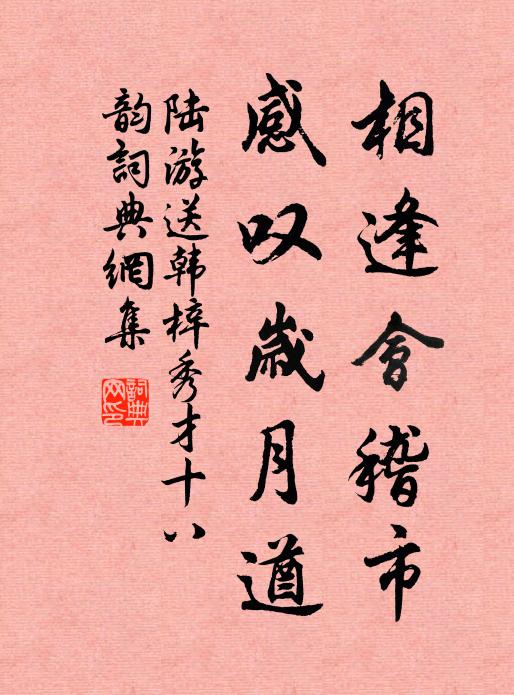 相逢會稽市
感叹歲月遒
陆游送韩梓秀才十八
韵詞典網集
詞典網印